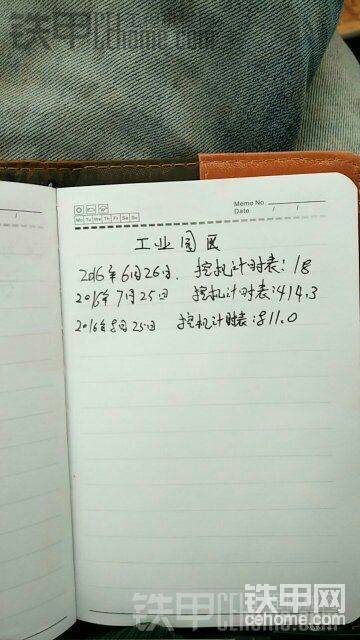 铁甲 cehome.com
Memo No.
Mo Tu We Th Fr Sa Su
Date / /
工业园区
2016年6月26日. 挖机计时表: 18
2016年7月25日 挖机计时表:414.3
2016年8月25日 挖机计时表:811.0
铁甲 cehome.com
铁甲网
cehome.com